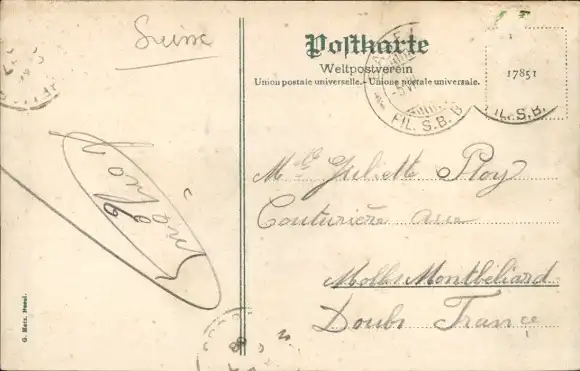 Suisse
Postkarte
Weltpostverein
Union postale universelle. - Unione postale universale.
17851
FIL. S.B.B.
IL. S.B.
Mlle Juliette Ploy
Couturière
Montbéliard
Doubs France
G. Metz, Basel.